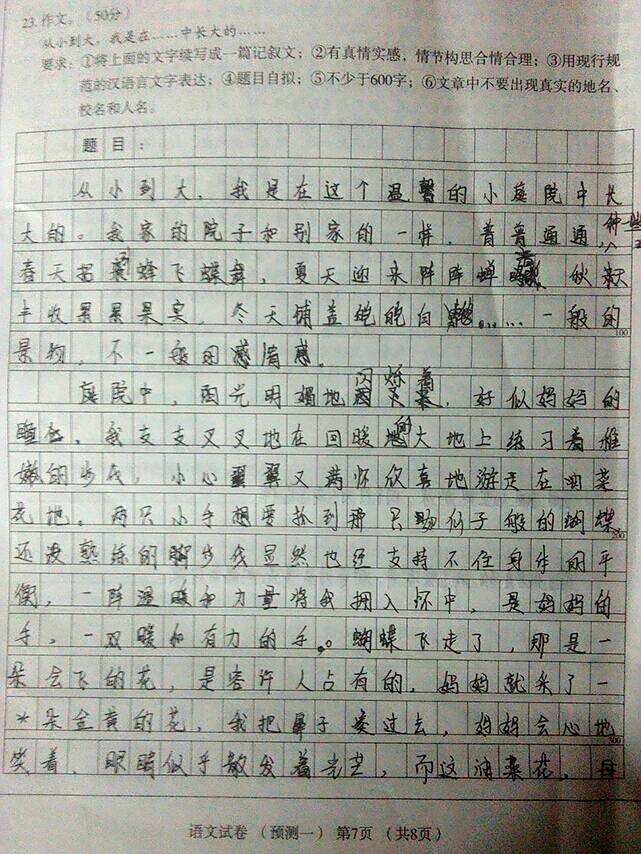 23.作文。(50分)
从小到大，我是在……中长大的……
要求：①将上面的文字续写成一篇记叙文；②有真情实感，情节构思合情合理；③用现行规
范的汉语言文字表达；④题目自拟；⑤不少于600字；⑥文章中不要出现真实的地名、
校名和人名。
题目：
从小到大，我是在这个温馨的小庭院中长
大的。我家的院子和别家的一样，普普通通，种一些
春天招来蜂飞蝶舞，夏天迎来阵阵蝉，秋天
丰收累累果实，冬天铺盖皑皑白……一般的
景物，不一般的情感。
庭院中，阳光明媚地闪烁着，好似妈妈的
我支支叉叉地在回暖的大地上练习着稚
嫩的步伐，小心翼翼又满怀欣喜地游走在油菜
花地。两只小手想要抢到那只似子般的蝴蝶
还没熟练的脚步伐显然也经支持不住身体的平
衡，一阵温暖和力量将我拥入怀中，是妈妈的
手，一双暖和有力的手。蝴蝶飞走了，那是一
朵会飞的花，是容许人占有的，妈妈就采了一
朵金黄的花，我把鼻子凑过去，妈妈会心地
笑着，眼睛似乎散发着光芒，而这油菜花，母
100
200
300
语文试卷 (预测一) 第7页 (共8页)